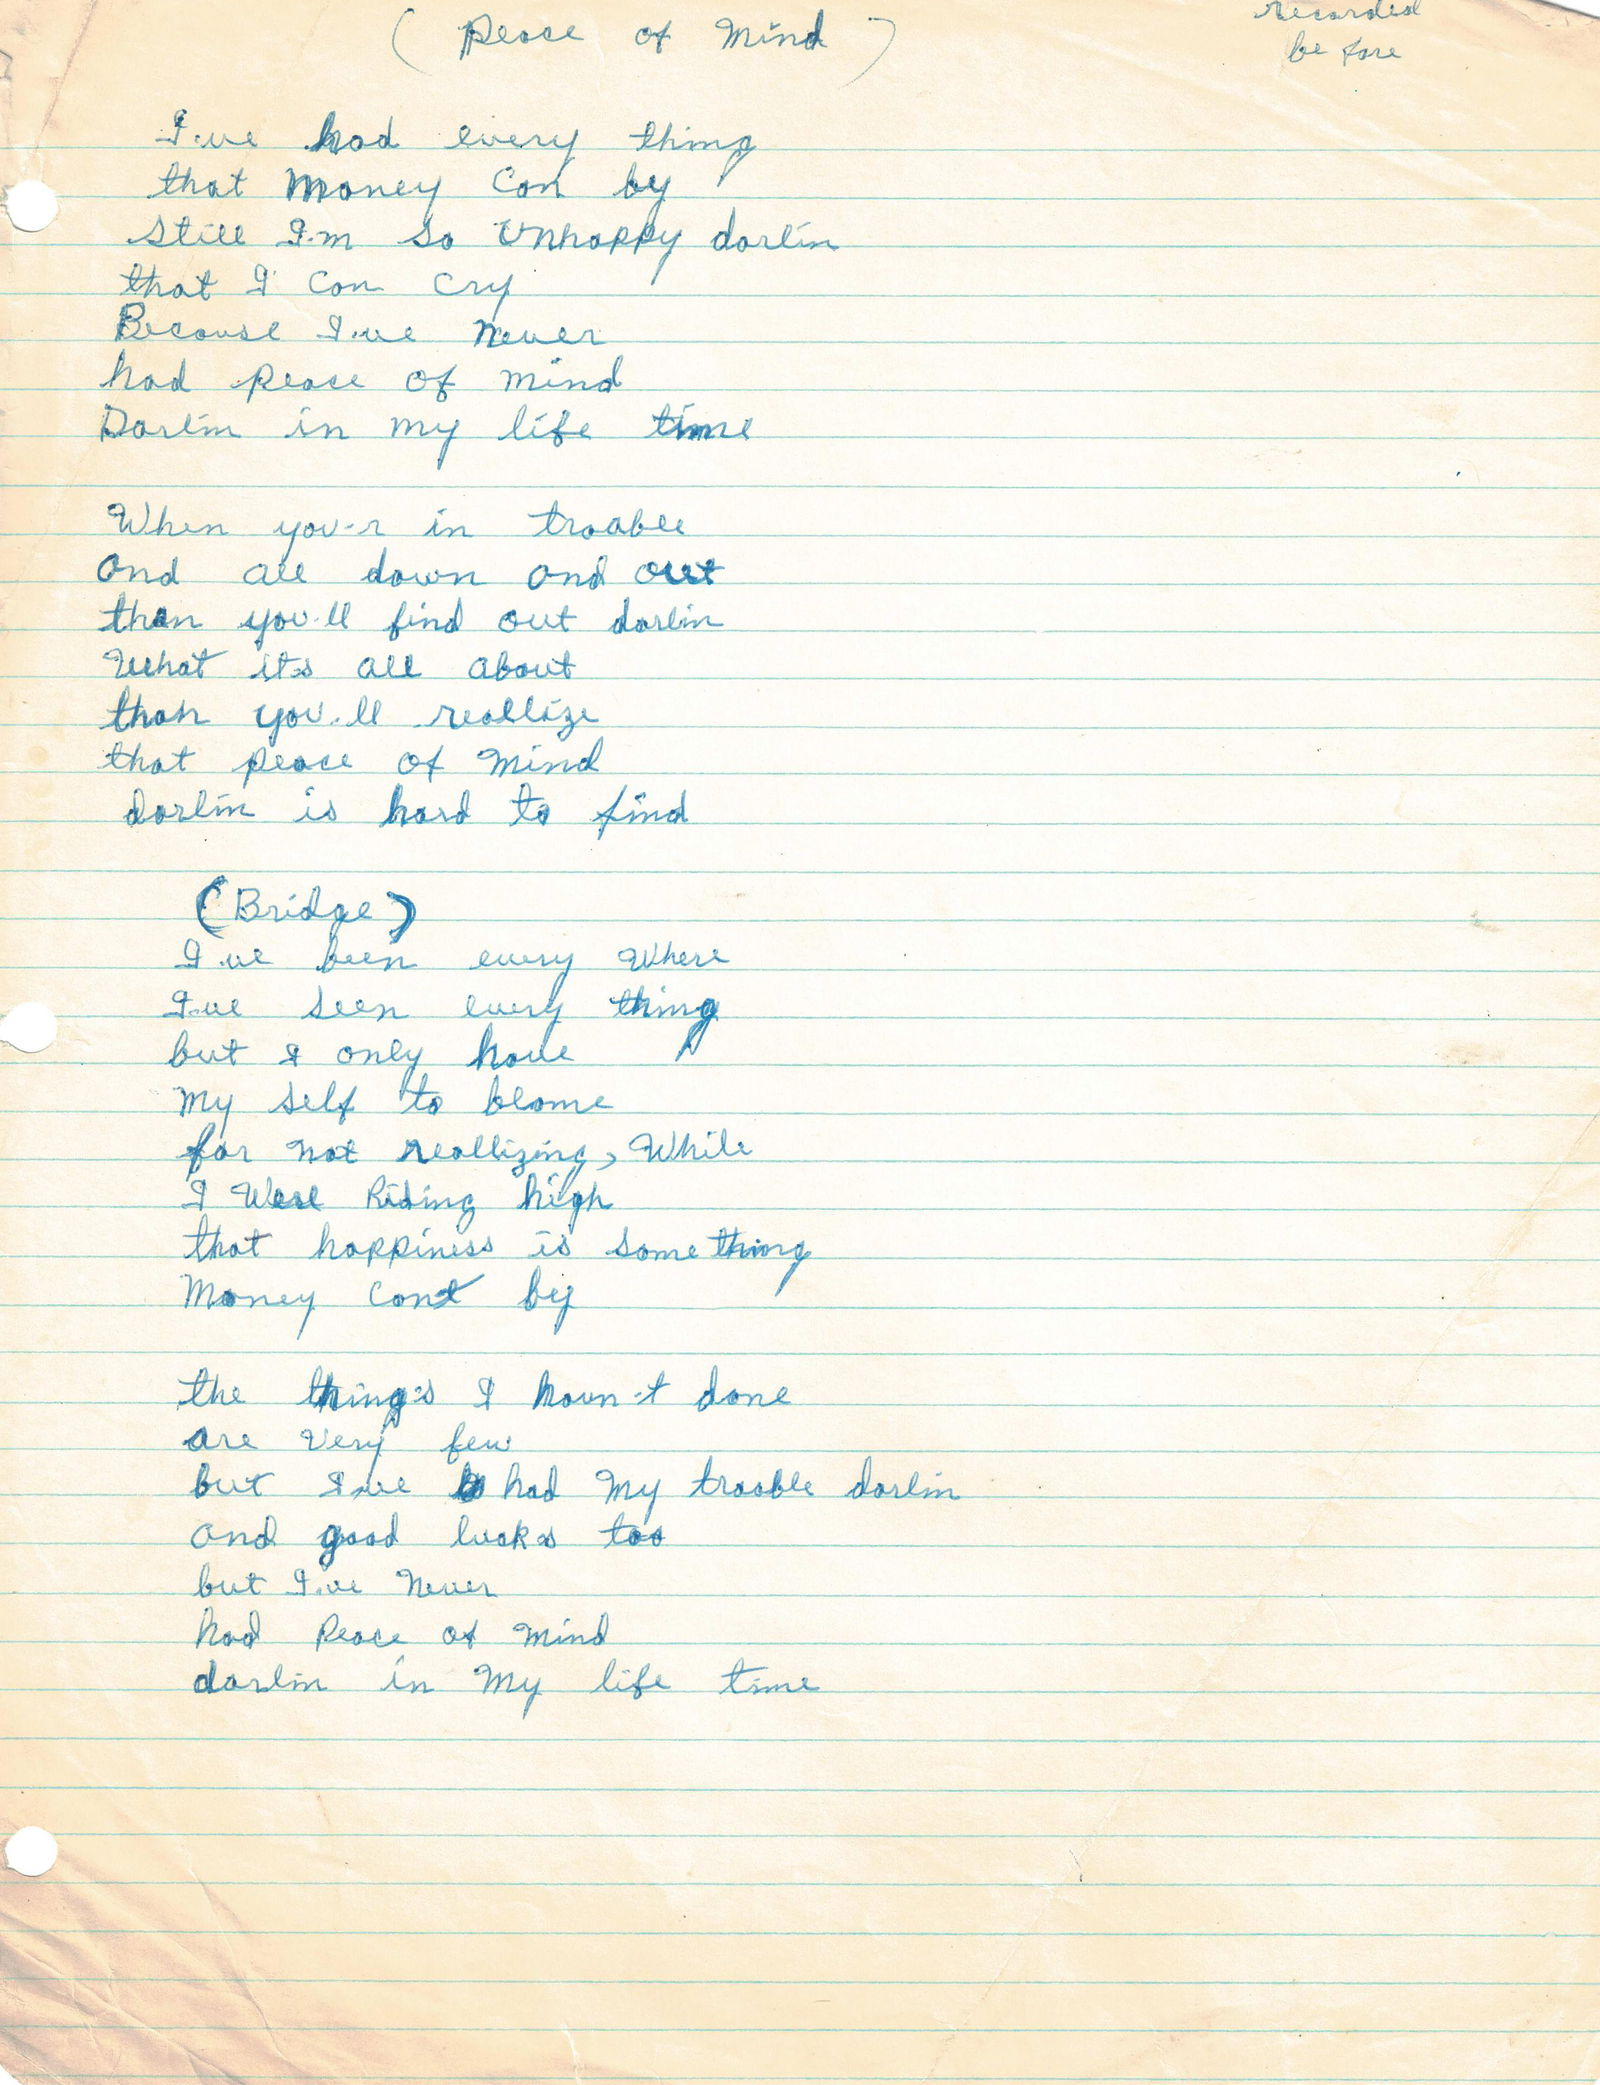 ( Peace of Mind )
recorded
before
I've had every thing
that Money Can by
Still I'm so Unhappy darlin
that I can cry
Because I've Never
had peace of mind
Darlin in my life time
When you-r in trouble
and all down and out
than you'll find out darlin
What it's all about
than you'll reallize
that peace of Mind
darlin is hard to find
(Bridge)
I've been every Where
I've seen every thing
but I only have
My self to blame
for not reallizing, While
I Were Riding high
that happiness is some thing
Money Can't by
the thing's I havn't done
are Very few
but I've had My trouble darlin
and good lucks too
but I've Never
had Peace of Mind
darlin in My life time